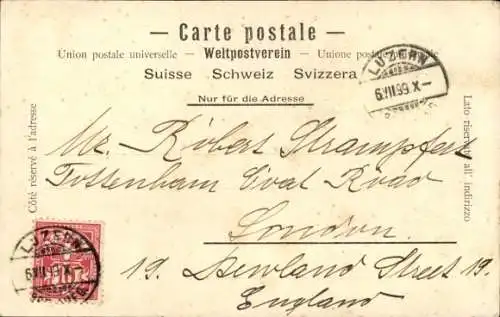 — Carte postale —
Union postale universelle — Weltpostverein — Unione postale universale
Suisse Schweiz Svizzera
Nur für die Adresse
Côté réservé à l'adresse
Lato riservato all' indirizzo
LUZERN
6.VII.99.X–
Mr. Robert Strampfert
Tottenham Court Road
London
19. Newland Street 19.
England
LUZERN
6.VII.99.X–
10